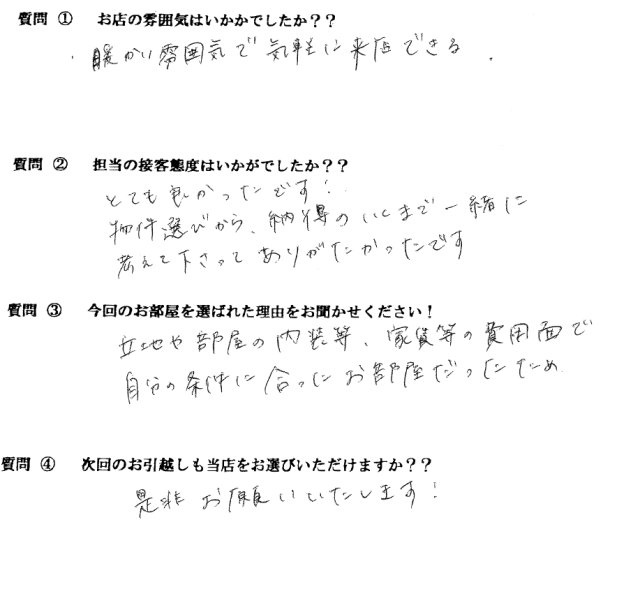 質問 ① お店の雰囲気はいかかでしたか？？
・暖かい雰囲気で気軽に来店できる．
質問 ② 担当の接客態度はいかがでしたか？？
とても良かったです！
物件選びから、納得のいくまで一緒に
考えて下さってありがたかったです
質問 ③ 今回のお部屋を選ばれた理由をお聞かせください！
立地や部屋の内装等、家賃等の費用面で
自分の条件に合ったお部屋だったため
質問 ④ 次回のお引越しも当店をお選びいただけますか？？
是非お願いいたします！